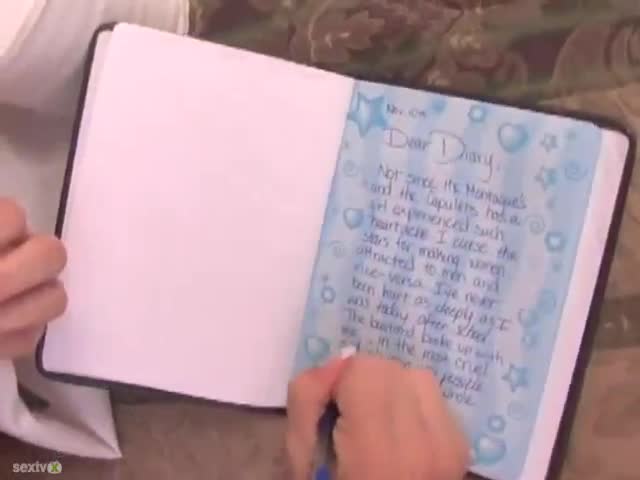 Nov. 10th
Dear Diary,
Not since the Montague's
and the Capulets has a
girl experienced such
heartache I curse the
stars for making women
attracted to men and
vice-versa. I've never
been hurt as deeply as I
was today after school
The bastard broke up with
me - in the most cruel
possible
whole
sextvx